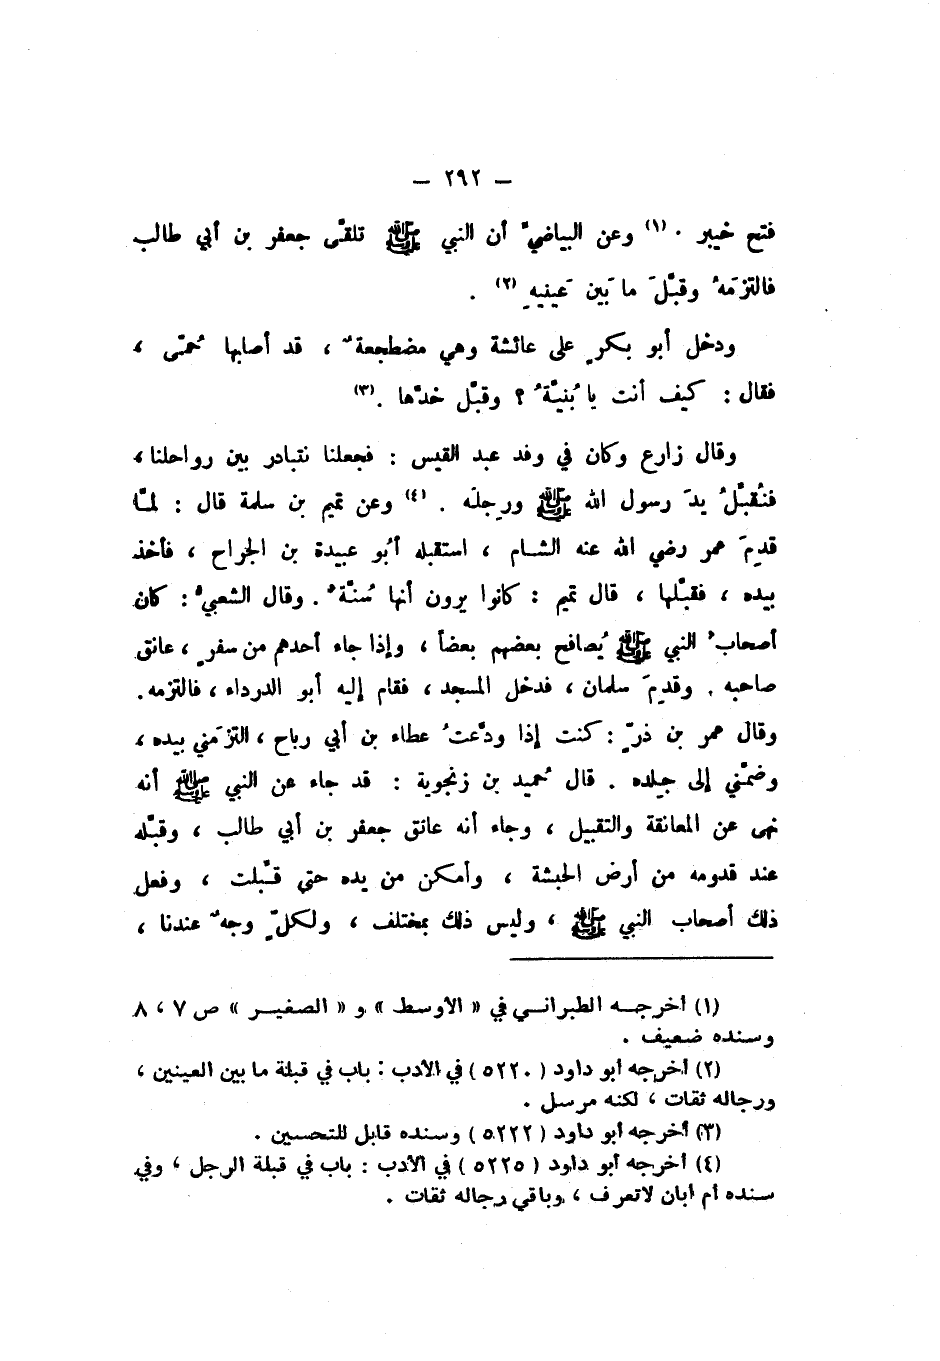 – ٢٩٢ –
فتح خيبر . (١) وعن البياضيّ أن النبي ﷺ تلقّى جعفر بن أبي طالب
فالتزمَهُ وقبَّلَ ما بَين عَينيهِ (٢) .
ودخل أبو بكرٍ على عائشة وهي مضطجعةٌ ، قد أصابها حُمّى ،
فقال : كيف أنت يا بُنيَّةُ ؟ وقبَّل خدَّها .(٣)
وقال زارع وكان في وفد عبد القيس : فجعلنا نتبادر بين رواحلنا ،
فنُقبِّلُ يدَ رسول الله ﷺ ورجلَه . (٤) وعن تميم بن سلمة قال : لمّا
قدِمَ عمر رضي الله عنه الشام ، استقبله أبُو عبيدة بن الجراح ، فأخذ
بيده ، فقبّلها ، قال تميم : كانوا يرون أنها سُنّةٌ . وقال الشعبيُّ : كان
أصحابُ النبي ﷺ يُصافح بعضهم بعضاً ، وإذا جاء أحدهم من سفرٍ ، عانق
صاحبه . وقدِمَ سلمان ، فدخل المسجد ، فقام إليه أبو الدرداء ، فالتزمه .
وقال عمر بن ذرّ : كنت إذا ودَّعتُ عطاء بن أبي رباح ، التزَمني بيده ،
وضمّني إلى جلده . قال حُميد بن زنجوية : قد جاء عن النبي ﷺ أنه
نهى عن المعانقة والتقبيل ، وجاء أنه عانق جعفر بن أبي طالب ، وقبّله
عند قدومه من أرض الحبشة ، وأمكن من يده حتى قبّلت ، وفعل
ذلك أصحاب النبي ﷺ ، وليس ذلك بمختلف ، ولكلٍّ وجهٌ عندنا ،
(١) أخرجه الطبراني في « الأوسط » و « الصغير » ص ٧ ، ٨
وسنده ضعيف .
(٢) أخرجه أبو داود ( ٥٢٢٠ ) في الأدب : باب في قبلة ما بين العينين ،
ورجاله ثقات ، لكنه مرسل .
(٣) أخرجه أبو داود ( ٥٢٢٢ ) وسنده قابل للتحسين .
(٤) أخرجه أبو داود ( ٥٢٢٥ ) في الأدب : باب في قبلة الرجل ، وفي
سنده أم أبان لاتعرف ، وباقي رجاله ثقات .